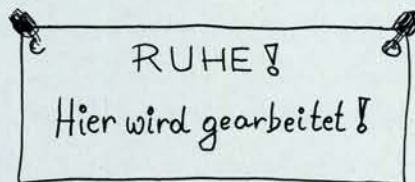 RUHE!
Hier wird gearbeitet!